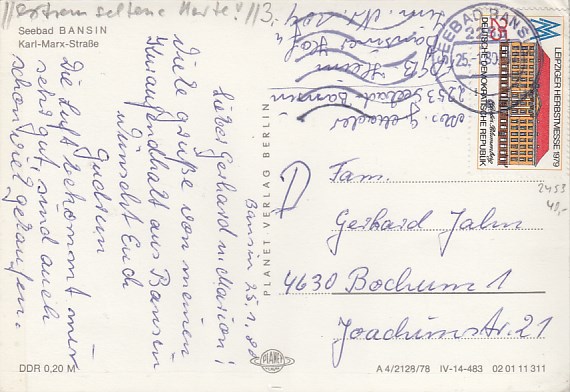 !!extrem seltene Marke!!!
Seebad BANSIN
Karl-Marx-Straße
Bansin 25.1.80
Lieber Gerhard u. Marion!
Viele Grüße von meinem
Kuraufenthalt aus Bansin
wünscht Euch
Gudrun
Die Luft bekommt mir
sehr gut, sind auch
schon viel gelaufen.
DDR 0,20 M
PLANET VERLAG BERLIN
PLANET
2253 Seebad-Bansin
SEEBAD BANSIN
25.-1.80
LEIPZIGER HERBSTMESSE 1979
25
DEUTSCHE DEMOKRATISCHE REPUBLIK
2453
40,-
Fam.
Gerhard Jahn
4630 Bochum 1
Joachimstr. 21
A 4/2128/78 IV-14-483 02 01 11 311